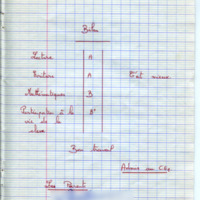 Bilan
Lecture A
Ecriture A C'est mieux.
Mathématiques B
Participation à la B+
vie de la
classe
Bon travail
Admis au CE2
Les Parents